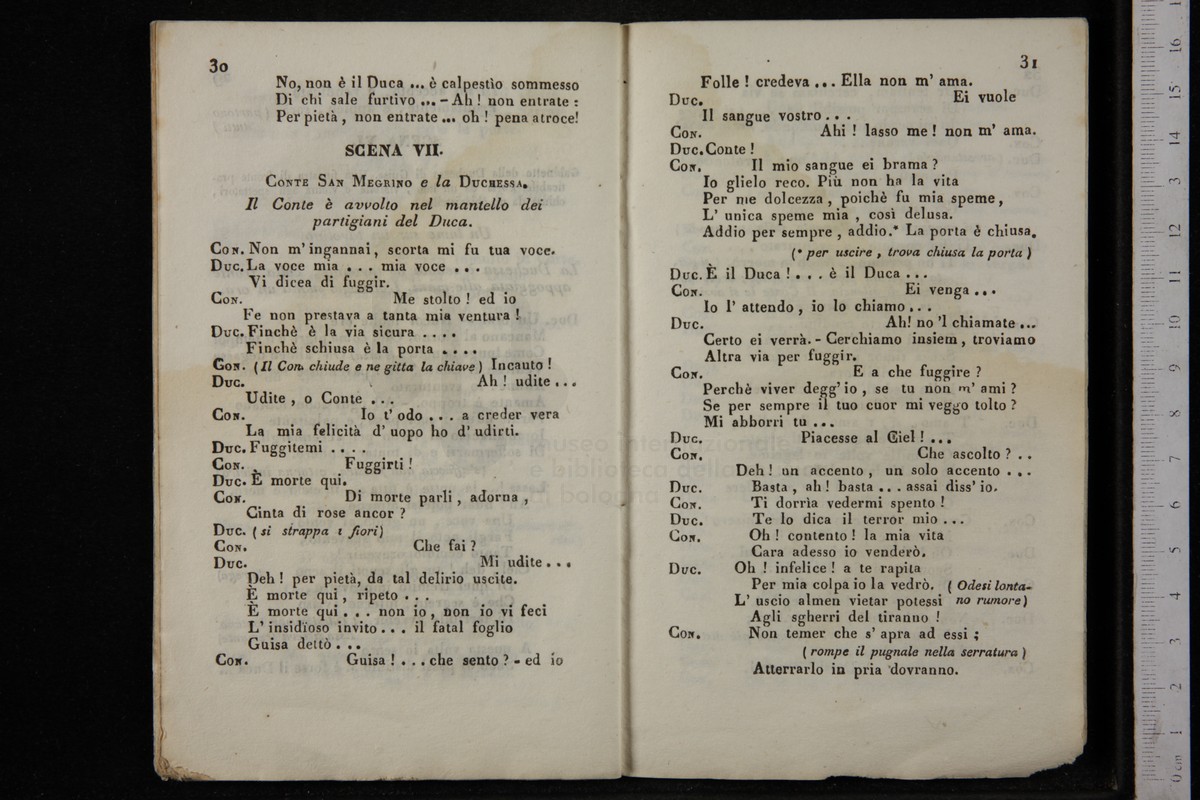 30
No, non è il Duca ... è calpestìo sommesso
Di chi sale furtivo ... - Ah ! non entrate :
Per pietà , non entrate ... oh ! pena atroce!
SCENA VII.
Conte San Megrino e la Duchessa.
Il Conte è avvolto nel mantello dei
partigiani del Duca.
Con. Non m' ingannai, scorta mi fu tua voce.
Duc. La voce mia . . . mia voce . . .
Vi dicea di fuggir.
Con. Me stolto ! ed io
Fe non prestava a tanta mia ventura !
Duc. Finchè è la via sicura . . . .
Finchè schiusa è la porta . . . .
Con. (Il Con. chiude e ne gitta la chiave) Incauto !
Duc. Ah ! udite . . .
Udite , o Conte . . .
Con. Io t' odo . . . a creder vera
La mia felicità d' uopo ho d' udirti.
Duc. Fuggitemi . . . .
Con. Fuggirti !
Duc. È morte qui.
Con. Di morte parli , adorna ,
Cinta di rose ancor ?
Duc. (si strappa i fiori)
Con. Che fai ?
Duc. Mi udite . . .
Deh ! per pietà, da tal delirio uscite.
È morte qui , ripeto . . .
È morte qui . . . non io , non io vi feci
L' insidïoso invito . . . il fatal foglio
Guisa dettò . . .
Con. Guisa ! . . . che sento ? - ed io
31
Folle ! credeva ... Ella non m' ama.
Duc. Ei vuole
Il sangue vostro . . .
Con. Ahi ! lasso me ! non m' ama.
Duc. Conte !
Con. Il mio sangue ei brama ?
Io glielo reco. Più non ha la vita
Per me dolcezza , poichè fu mia speme ,
L' unica speme mia , così delusa.
Addio per sempre , addio.* La porta è chiusa.
(* per uscire , trova chiusa la porta )
Duc. È il Duca ! . . . è il Duca . . .
Con. Ei venga . . .
Io l' attendo , io lo chiamo . . .
Duc. Ah! no 'l chiamate ...
Certo ei verrà. - Cerchiamo insiem , troviamo
Altra via per fuggir.
Con. E a che fuggire ?
Perchè viver degg' io , se tu non m' ami ?
Se per sempre il tuo cuor mi veggo tolto ?
Mi abborri tu ...
Duc. Piacesse al Ciel ! ...
Con. Che ascolto ? . .
Deh ! un accento , un solo accento . . .
Duc. Basta , ah ! basta . . . assai diss' io.
Con. Ti dorrìa vedermi spento !
Duc. Te lo dica il terror mio . . .
Con. Oh ! contento ! la mia vita
Cara adesso io venderò.
Duc. Oh ! infelice ! a te rapita
Per mia colpa io la vedrò. ( Odesi lonta-
L' uscio almen vietar potessi no rumore)
Agli sgherri del tiranno !
Con. Non temer che s' apra ad essi ;
( rompe il pugnale nella serratura )
Atterrarlo in pria dovranno.
museo internazionale
e biblioteca della
di bologna
0 cm 1 2 3 4 5 6 7 8 9 10 11 12 13 14 15 16